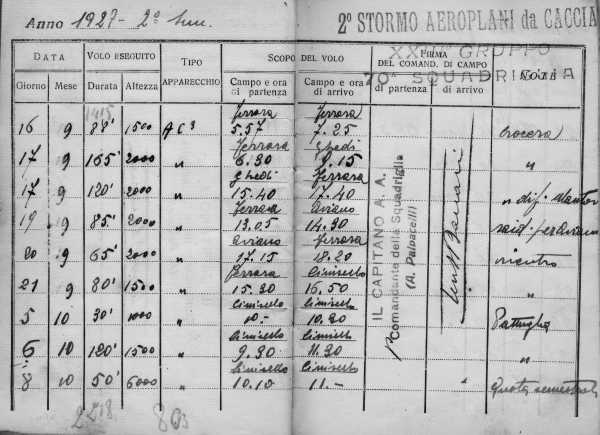 Anno 1927 - 2° Sem.
2° STORMO AEROPLANI da CACCIA
XXIII GRUPPO
70ª SQUADRIGLIA
DATA VOLO ESEGUITO TIPO APPARECCHIO SCOPO DEL VOLO FIRMA DEL COMAND. DI CAMPO NOTE
Giorno Mese Durata Altezza Campo e ora di partenza Campo e ora di arrivo di partenza di arrivo
1415
Ferrara Ferrara
16 9 88' 1500 AC3 5.57 7.25 Crociera
Ferrara Ghedi
17 9 165' 2000 " 6.30 9.15 "
Ghedi Ferrara
17 9 120' 2000 " 15.40 17.40 " dif.
Ferrara Aviano
19 9 85' 2000 " 13.05 14.30
Aviano Ferrara
20 9 65' 2000 " 17.15 18.20 rientro
Ferrara Cinisello
21 9 80' 1500 " 15.30 16.50 "
Cinisello Cinisello
5 10 30' 1000 " 10.- 10.30 Pattuglia
Cinisello Cinisello
6 10 120' 1500 " 9.30 11.30 "
Cinisello Cinisello
8 10 50' 6000 " 10.10 11.- " Quota semestrale
2218 803
IL CAPITANO A. A.
Comandante della Squadriglia
(A. Paloacelli)